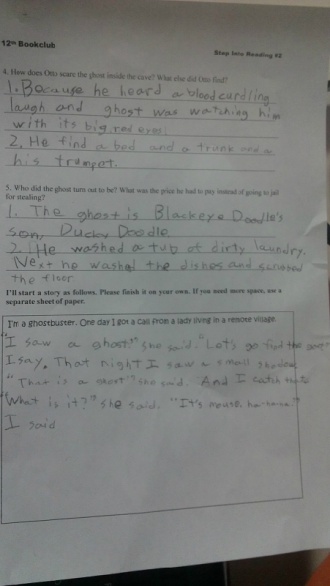 12th Bookclub
Step Into Reading #2
4. How does Otto scare the ghost inside the cave? What else did Otto find?
1. Because he heard a bloodcurdling
laugh and ghost was watching him
with its big red eyes.
2. He find a bed and a trunk and a
his trumpet.
5. Who did the ghost turn out to be? What was the price he had to pay instead of going to jail
for stealing?
1. The ghost is Blackeye Doodle's
son, Ducky Doodle.
2. He washed a tub of dirty laundry.
Next he washed the dishes and
the floor
I'll start a story as follows. Please finish it on your own. If you need more space, use a
separate sheet of paper.
I'm a ghostbuster. One day I got a call from a lady living in a remote village.
"I saw a ghost." she said. "Let's go find the
I say. That night I saw a small shadow
"That is a ghost" she said. And I catch
"What is it?" she said. "It's mouse,
I said